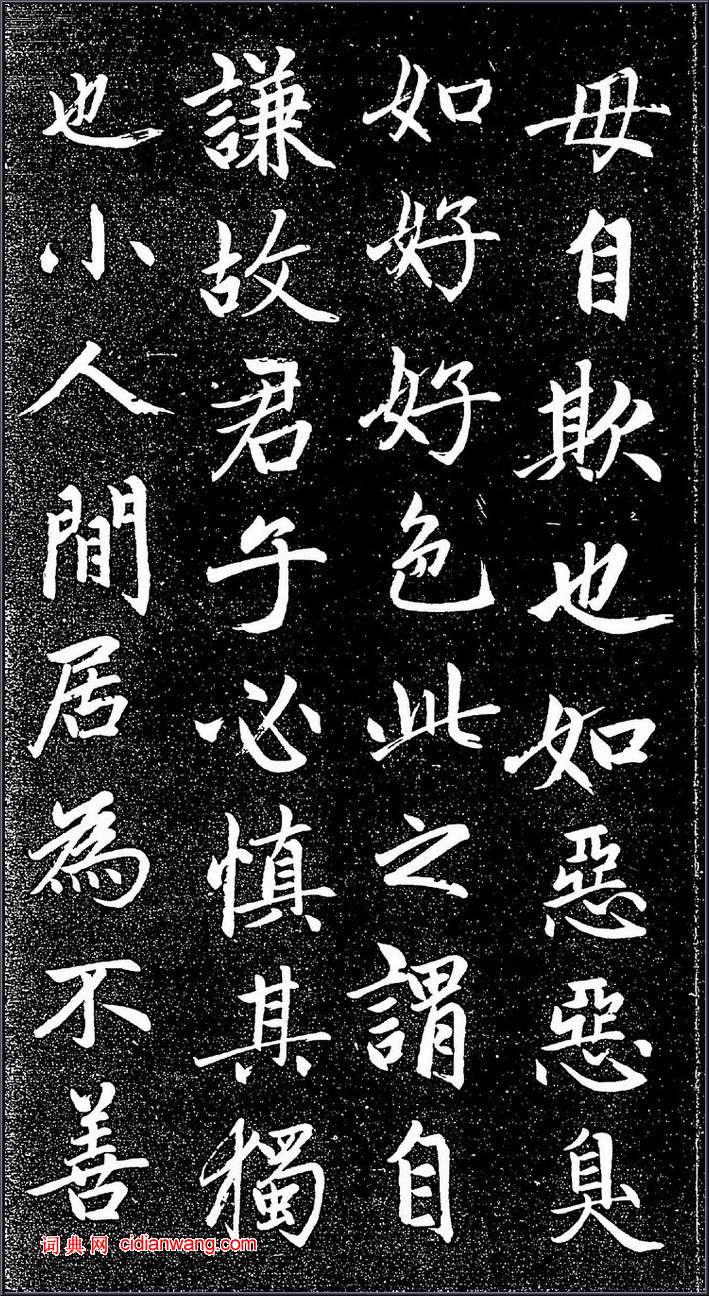 毋自欺也如惡惡臭
如好好色此之謂自
謙故君子必慎其獨
也小人閒居為不善
词典网 cidianwang.com